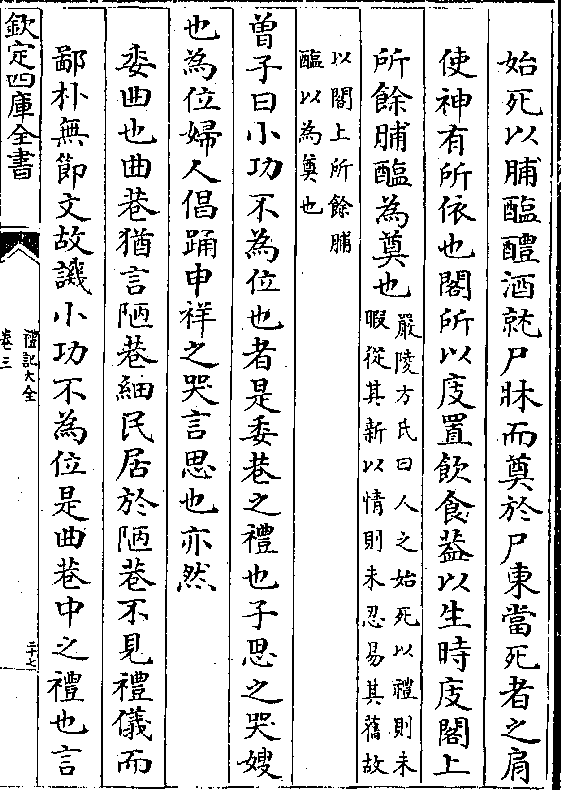 始死以脯醢醴酒就尸牀而奠於尸東當死者之肩
使神有所依也閣所以庋置飲食葢以生時庋閣上
所餘脯醢為奠也
嚴陵方氏曰人之始死以禮則未
暇從其新以情則未忍易其舊故
以閣上所餘脯
醢以為奠也
曾子曰小功不為位也者是委巷之禮也子思之哭嫂
也為位婦人倡踊申祥之哭言思也亦然
委曲也曲巷猶言陋巷細民居於陋巷不見禮儀而
鄙朴無節文故譏小功不為位是曲巷中之禮也言
欽定四庫全書
禮記大全
卷三
二十七